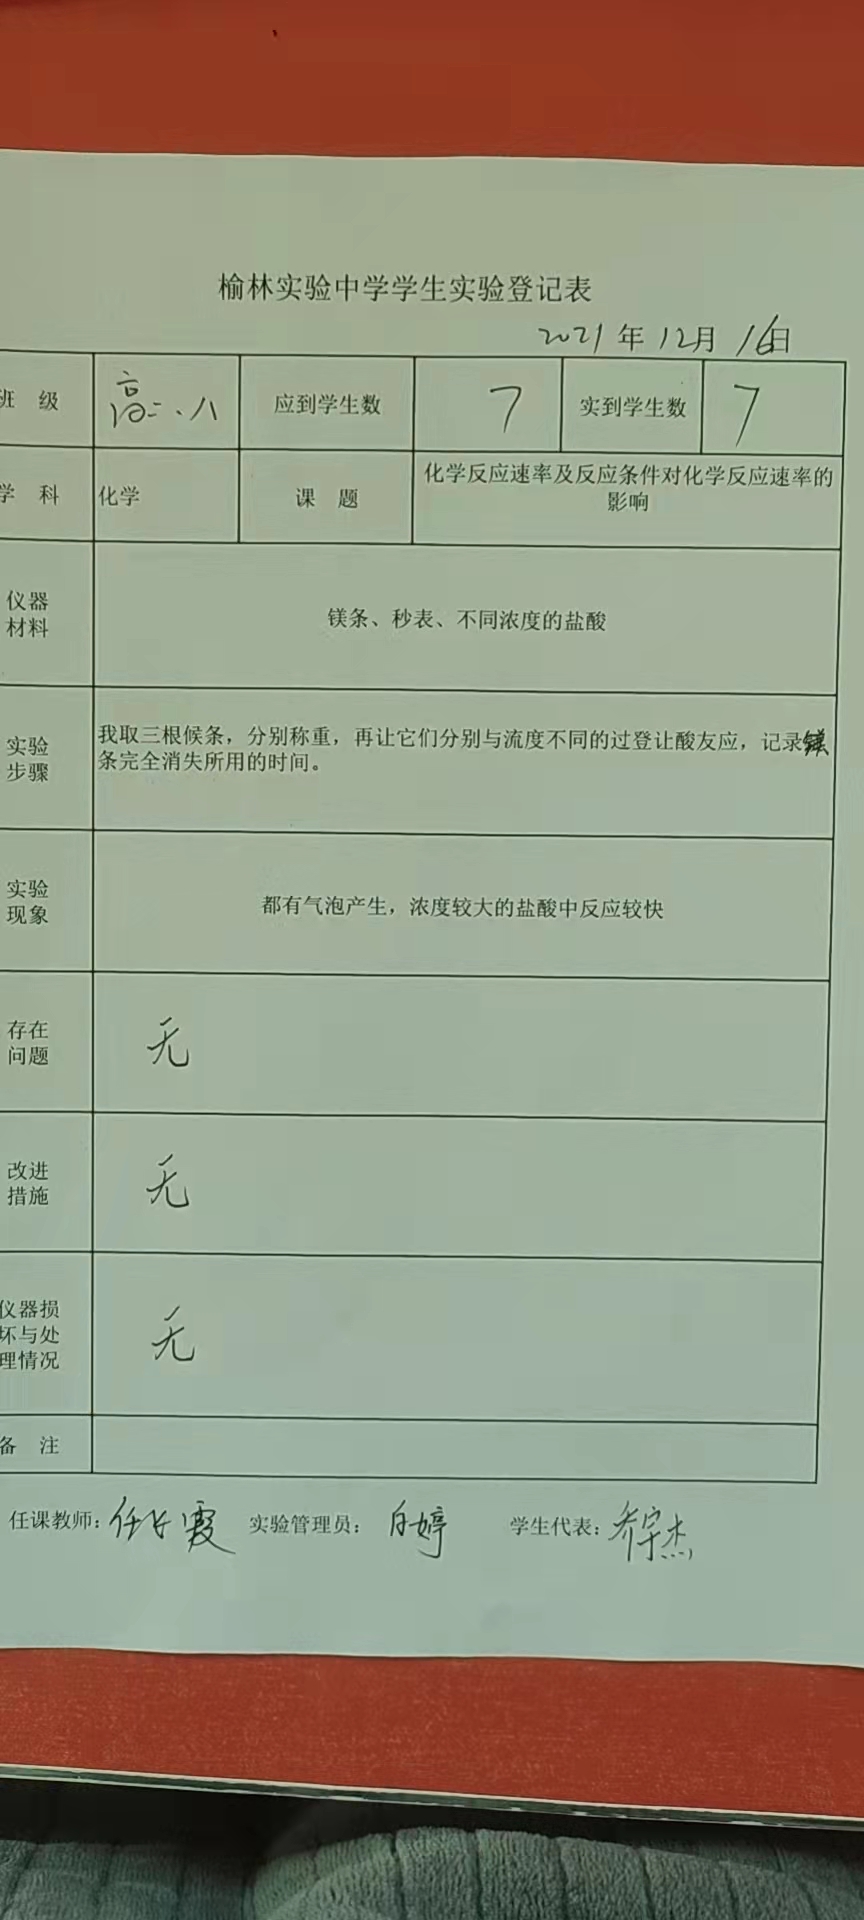 榆林实验中学学生实验登记表
2021年12月16日
班 级 高二、八 应到学生数 7 实到学生数 7
学 科 化学 课 题 化学反应速率及反应条件对化学反应速率的
影响
仪器
材料
镁条、秒表、不同浓度的盐酸
实验
步骤
我取三根候条，分别称重，再让它们分别与流度不同的过登让酸友应，记录镁
条完全消失所用的时间。
实验
现象
都有气泡产生，浓度较大的盐酸中反应较快
存在
问题
无
改进
措施
无
仪器损
坏与处
理情况
无
备 注
任课教师: 任长霞 实验管理员: 白婷 学生代表: 乔宇杰